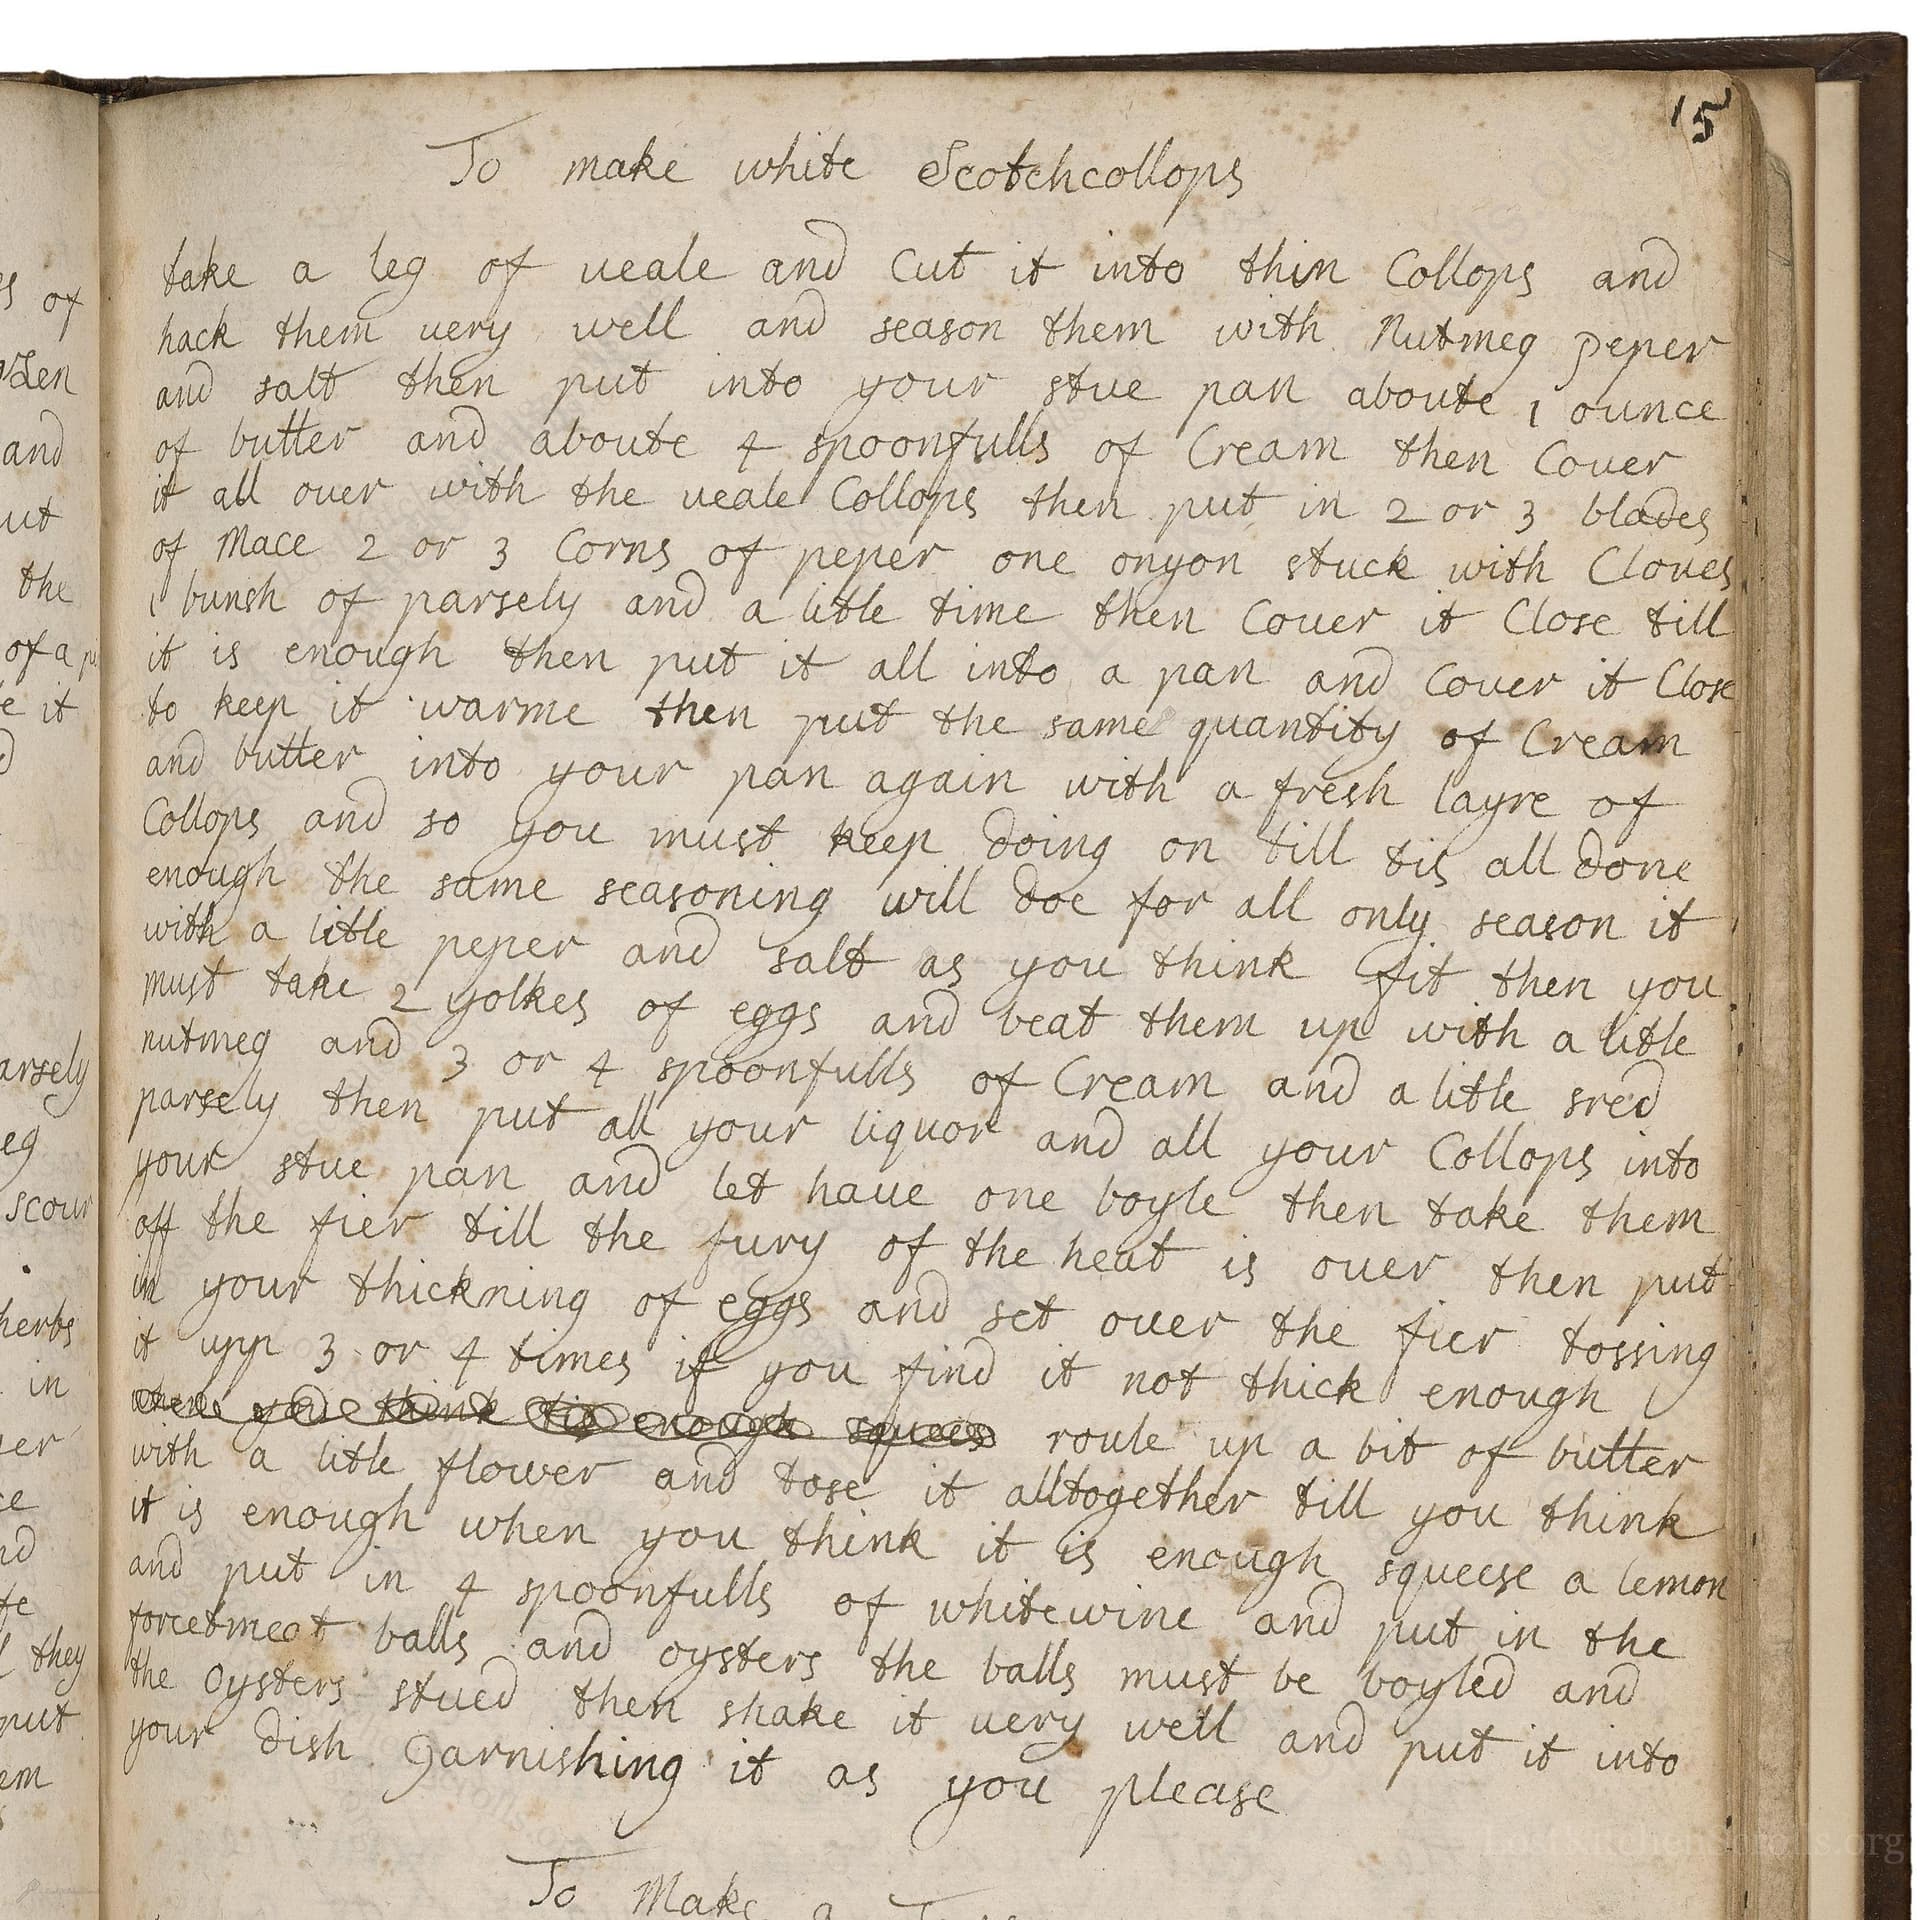 15
To make white Scotchcollops
take a leg of ueale and Cut it into thin Collops and
hack them uery well and season them with Nutmeg peper
and salt then put into your stue pan aboute 1 ounce
of butter and aboute 4 spoonfulls of Cream then Couer
it all ouer with the ueale Collops then put in 2 or 3 blades
of Mace 2 or 3 Corns of peper one onyon stuck with Cloues
1 bunsh of parsely and a litle time then Couer it Close till
it is enough then put it all into a pan and Couer it Close
to keep it warme then put the same quantity of Cream
and butter into your pan again with a fresh layre of
Collops and so you must keep doing on till tis all done
enough the same seasoning will doe for all only season it
with a litle peper and salt as you think fit then you
must take 2 yolkes of eggs and beat them up with a litle
nutmeg and 3 or 4 spoonfulls of Cream and a litle sred
parsely then put all your liquor and all your Collops into
your stue pan and let haue one boyle then take them
off the fier till the fury of the heat is ouer then put
in your thickning of eggs and set ouer the fier tossing
it upp 3 or 4 times if you find it not thick enough
when you think tis enough squees roule up a bit of butter
with a litle flower and tose it alltogether till you think
it is enough when you think it is enough squeese a lemon
and put in 4 spoonfulls of whitewine and put in the
forcetmeat balls and oysters the balls must be boyled and
the oysters stued then shake it uery well and put it into
your dish garnishing it as you please
To Make a
of
and
ut
the
of a
e it
arsely
eg
scour
herbs
in
they
put